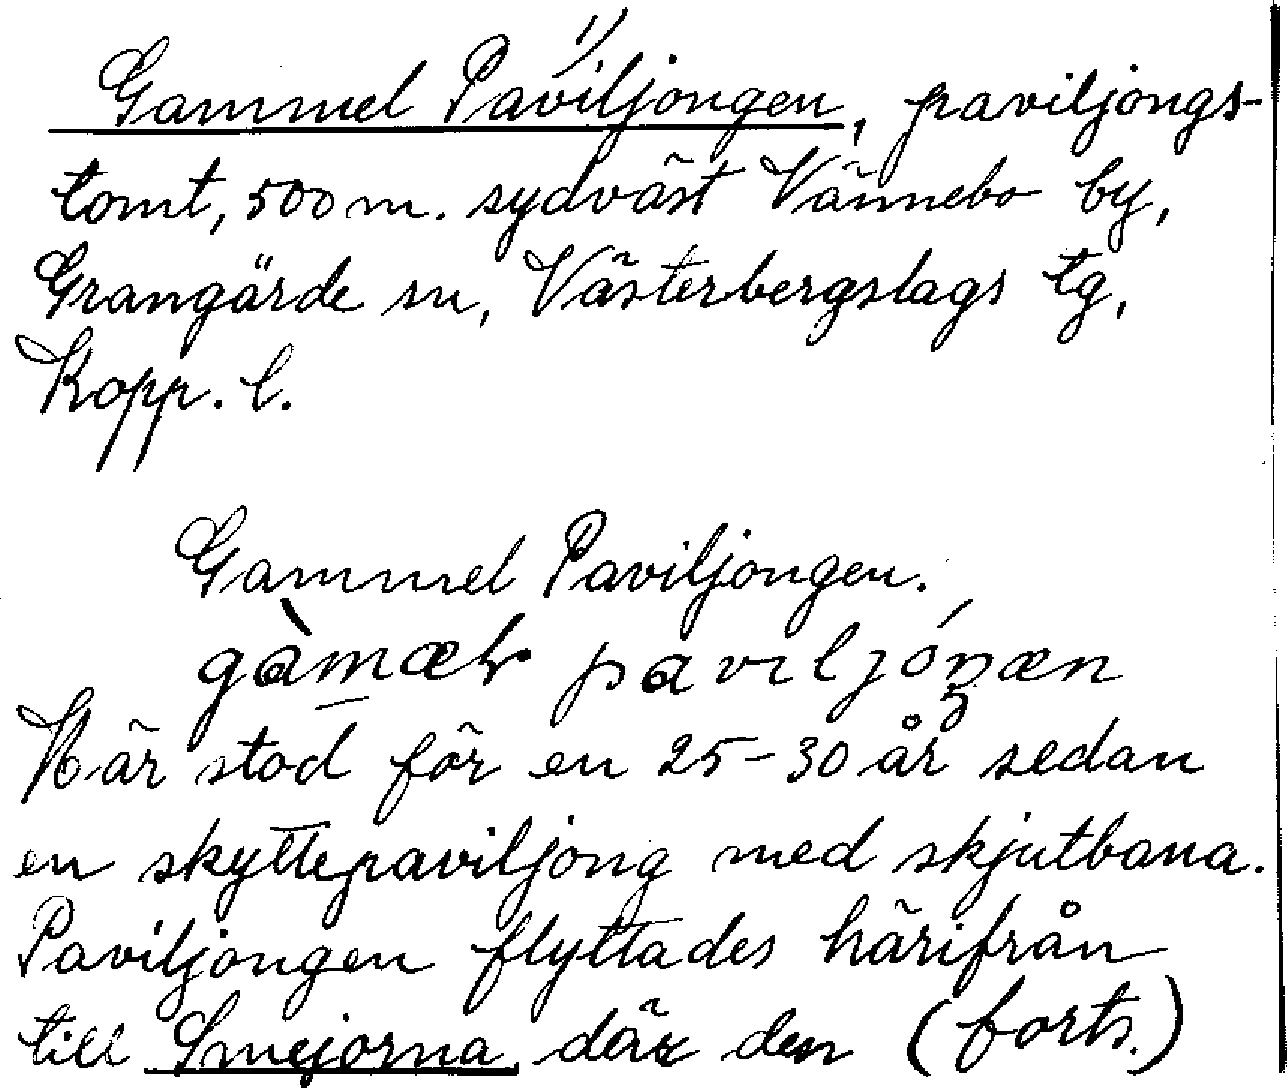 1)
Gammel Paviljongen, paviljongs-
tomt, 500 m. sydväst Vännebo by,
Grangärde sn, Västerbergslags tg,
Kopp. l.
Gammel Paviljongen.
gàmæl paviljóŋæn
Här stod för en 25-30 år sedan
en skyttepaviljong med skjutbana.
Paviljongen flyttades härifrån
till Smejorna, där den (forts.)